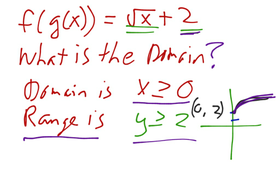 f(g(x)) = √x + 2
What is the Domain?
Domain is x ≥ 0
Range is y ≥ 2 (0, 2)